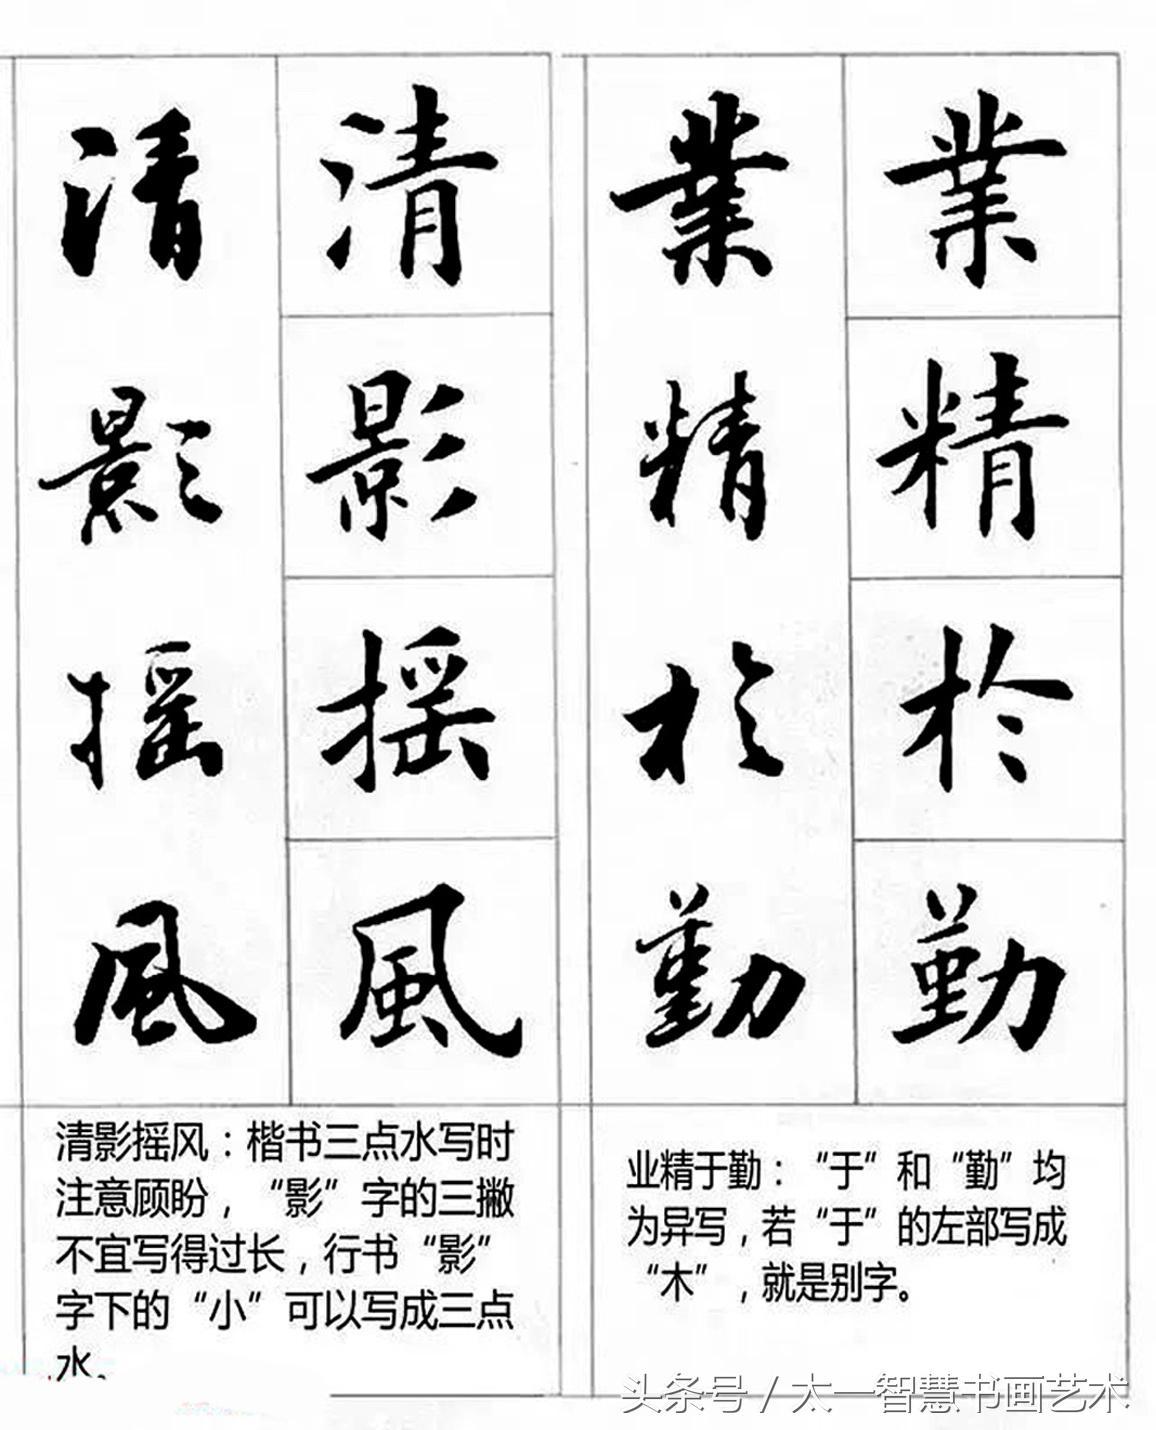 業精於勤
業精於勤
清影摇風
清影摇風
业精于勤：“于”和“勤”均
为异写，若“于”的左部写成
“木”，就是别字。
清影摇风：楷书三点水写时
注意顾盼，“影”字的三撇
不宜写得过长，行书“影”
字下的“小”可以写成三点
水。
头条号／太一智慧书画艺术